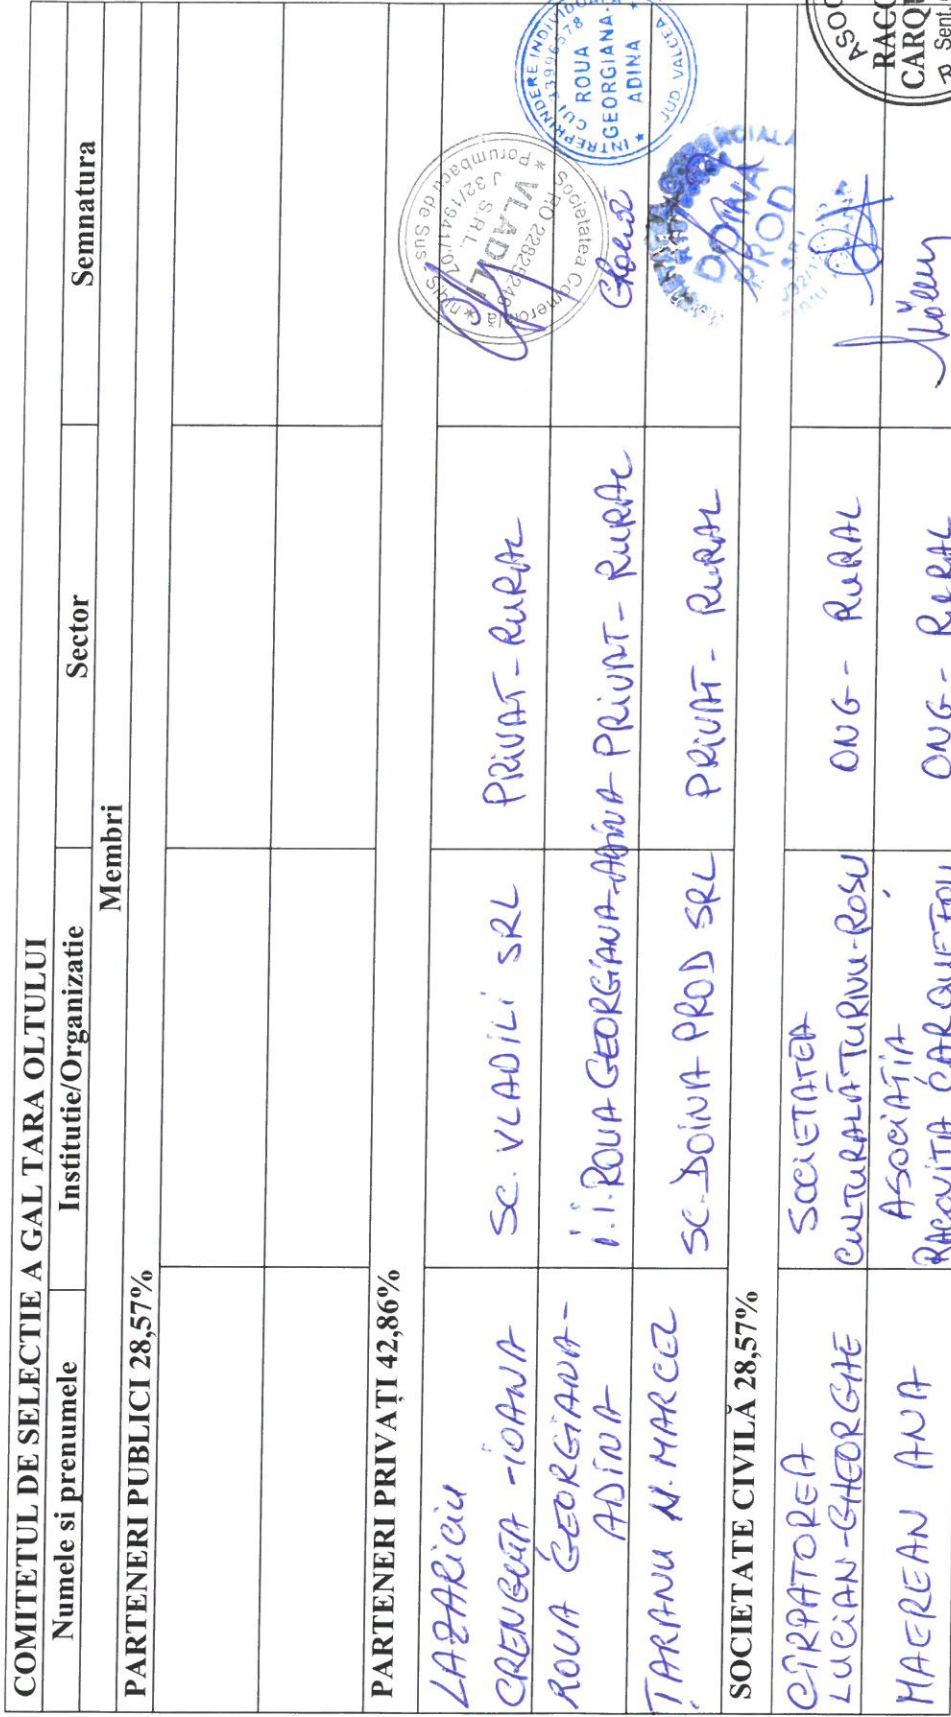 COMITETUL DE SELECTIE A GAL TARA OLTULUI
Numele si prenumele Institutie/Organizatie Sector Semnatura
Membri
PARTENERI PUBLICI 28,57%
PARTENERI PRIVAȚI 42,86%
LAZARICIU
CRENGUȚA-IOANA SC. VLADILI SRL PRIVAT-RURAL
Societatea Comercială
RO 22825248
VLADILI
S.R.L.
J 32/1941/07
* Porumbacu de Sus * Sibiu *
ROUA GEORGIANA-
ADINA I.I. ROUA GEORGIANA-ADINA PRIVAT-RURAL
INTREPRINDERE INDIVIDUALA
CUI
ROUA
GEORGIANA-
ADINA
JUD. VALCEA
ȚARANU N. MARCEL SC. DOINA PROD SRL PRIVAT-RURAL
DOINA
PROD
SOCIETATE CIVILĂ 28,57%
CIRPATOREA
LUCIAN-GHEORGHE
SOCIETATEA
CULTURALĂ TURNU-ROȘU
ONG - RURAL
MAEREAN ANA
ASOCIAȚIA
RACOVIȚA CARQUEFOU
ONG - RURAL
ASOC
RACO
CARQU
Sent.